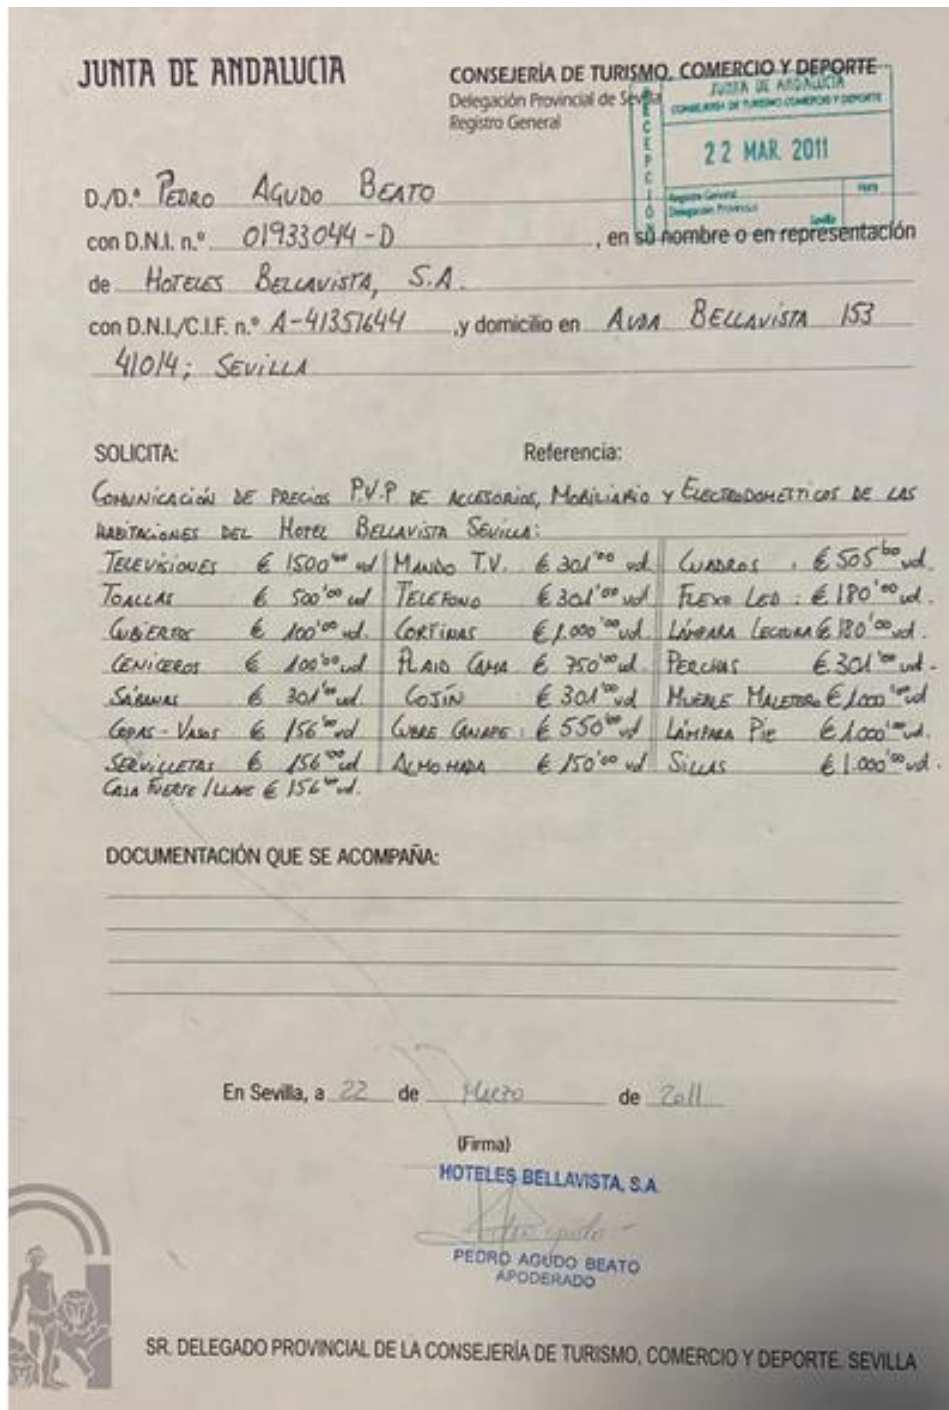 JUNTA DE ANDALUCIA
CONSEJERÍA DE TURISMO, COMERCIO Y DEPORTE
Delegación Provincial de Sevilla
Registro General
RECEPCIÓN
JUNTA DE ANDALUCIA
CONSEJERIA DE TURISMO COMERCIO Y DEPORTE
22 MAR. 2011
Registro General
Delegación Provincial
Hora
Sevilla
D./D.ª PEDRO AGUDO BEATO
con D.N.I. n.º 01933044-D, en su nombre o en representación
de HOTELES BELLAVISTA, S.A.
con D.N.I./C.I.F. n.º A-41351644, y domicilio en AVDA BELLAVISTA 153
41014; SEVILLA
SOLICITA: Referencia:
COMUNICACIÓN DE PRECIOS P.V.P DE ACCESORIOS, MOBILIARIO Y ELECTRODOMÉSTICOS DE LAS
HABITACIONES DEL HOTEL BELLAVISTA SEVILLA:
TELEVISIONES € 1500'00 ud MANDO T.V. € 301'00 ud. CUADROS : € 505'00 ud.
TOALLAS € 500'00 ud TELEFONO € 301'00 ud FLEXO LED : € 180'00 ud.
CUBIERTOS € 100'00 ud. CORTINAS € 1.000'00 ud. LÁMPARA LECTURA € 180'00 ud.
CENICEROS € 100'00 ud. PLAID CAMA € 750'00 ud. PERCHAS € 301'00 ud.
SÁBANAS € 301'00 ud COJÍN € 301'00 ud MUEBLE MALETERO € 1.000'00 ud.
COPAS-VASOS € 156'00 ud CUBRE CANAPE : € 550'00 ud LÁMPARA PIE € 1.000'00 ud.
SERVILLETAS € 156'00 ud ALMOHADA € 150'00 ud SILLAS € 1.000'00 ud.
CAJA FUERTE/LLAVE € 156'00 ud.
DOCUMENTACIÓN QUE SE ACOMPAÑA:
En Sevilla, a 22 de Marzo de 2011
(Firma)
HOTELES BELLAVISTA, S.A.
PEDRO AGUDO BEATO
APODERADO
SR. DELEGADO PROVINCIAL DE LA CONSEJERÍA DE TURISMO, COMERCIO Y DEPORTE. SEVILLA